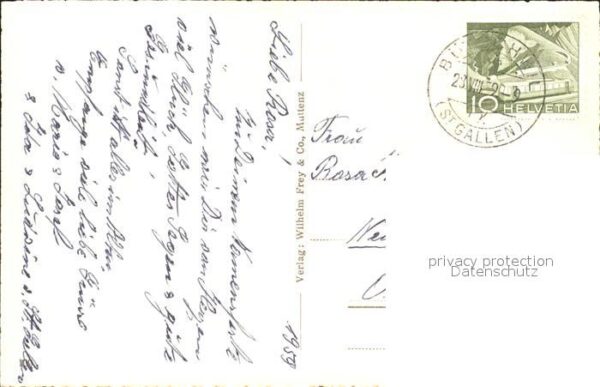 Liebe Rosa,
zu Deinem Namensfeste
wünschen wir Dir von Herzen
viel Glück, Gottes Segen & gute
Gesundheit.
Sonst ist alles im Alten.
Empfange viele liebe Grüsse
v. Maria & Josef
& Ida &
1959
Verlag: Wilhelm Frey & Co., Muttenz
Frau
Rosa
(ST GALLEN)
10 HELVETIA
privacy protection
Datenschutz